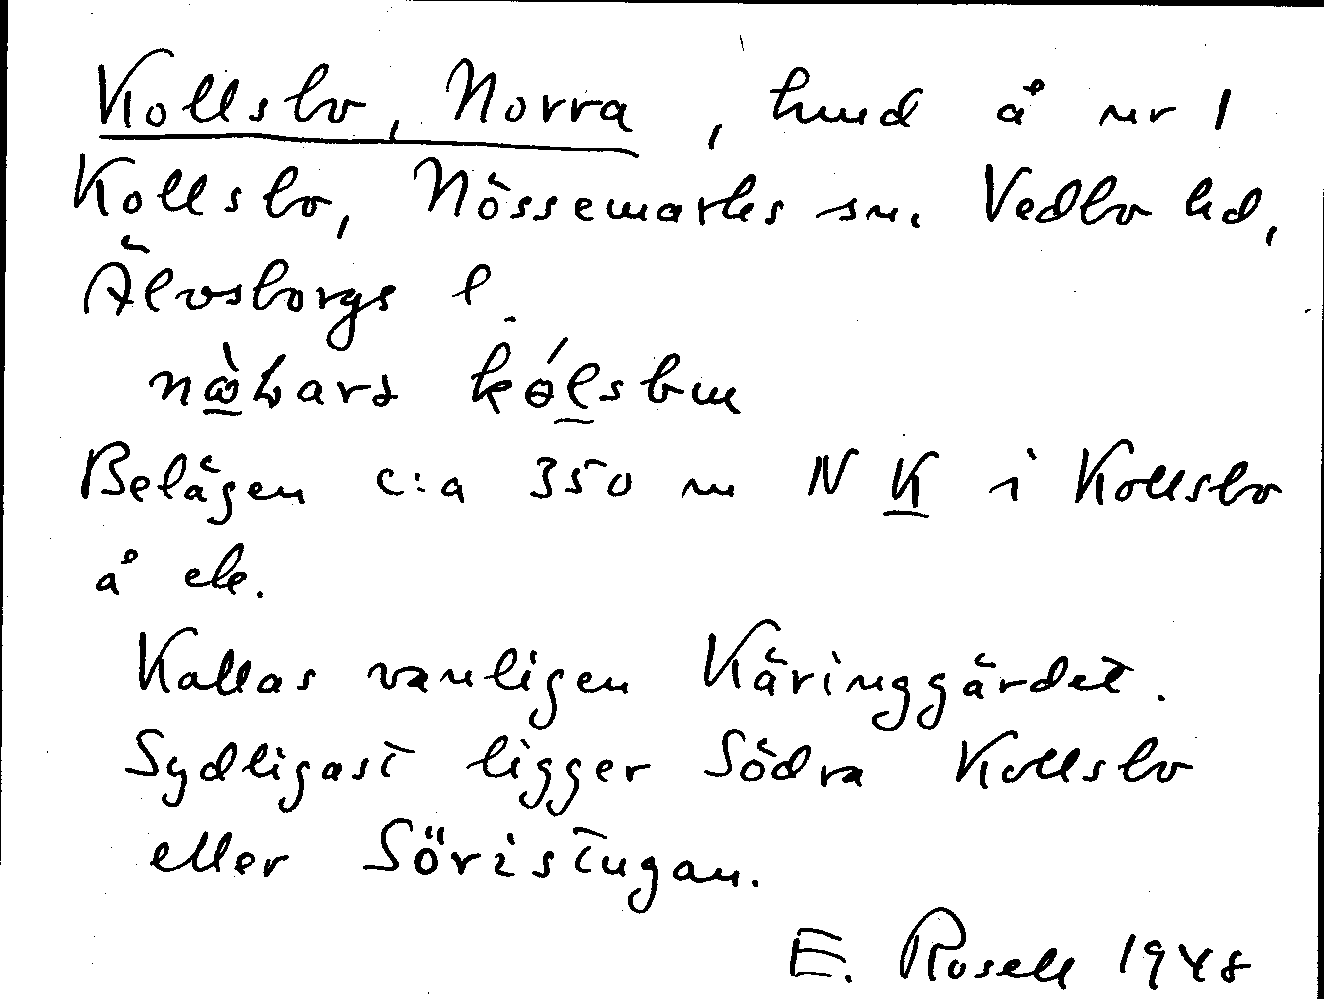 Kollsbo, Norra, hmd å nr 1
Kollsbo, Nössemarks sn. Vedbo hd,
Älvsborgs l.
Belägen c:a 350 m N K i Kollsbo
å ek.
Kallas vanligen Käringgärdet.
Sydligast ligger Södra Kollsbo
eller Söristugan.
E. Rosell 1948